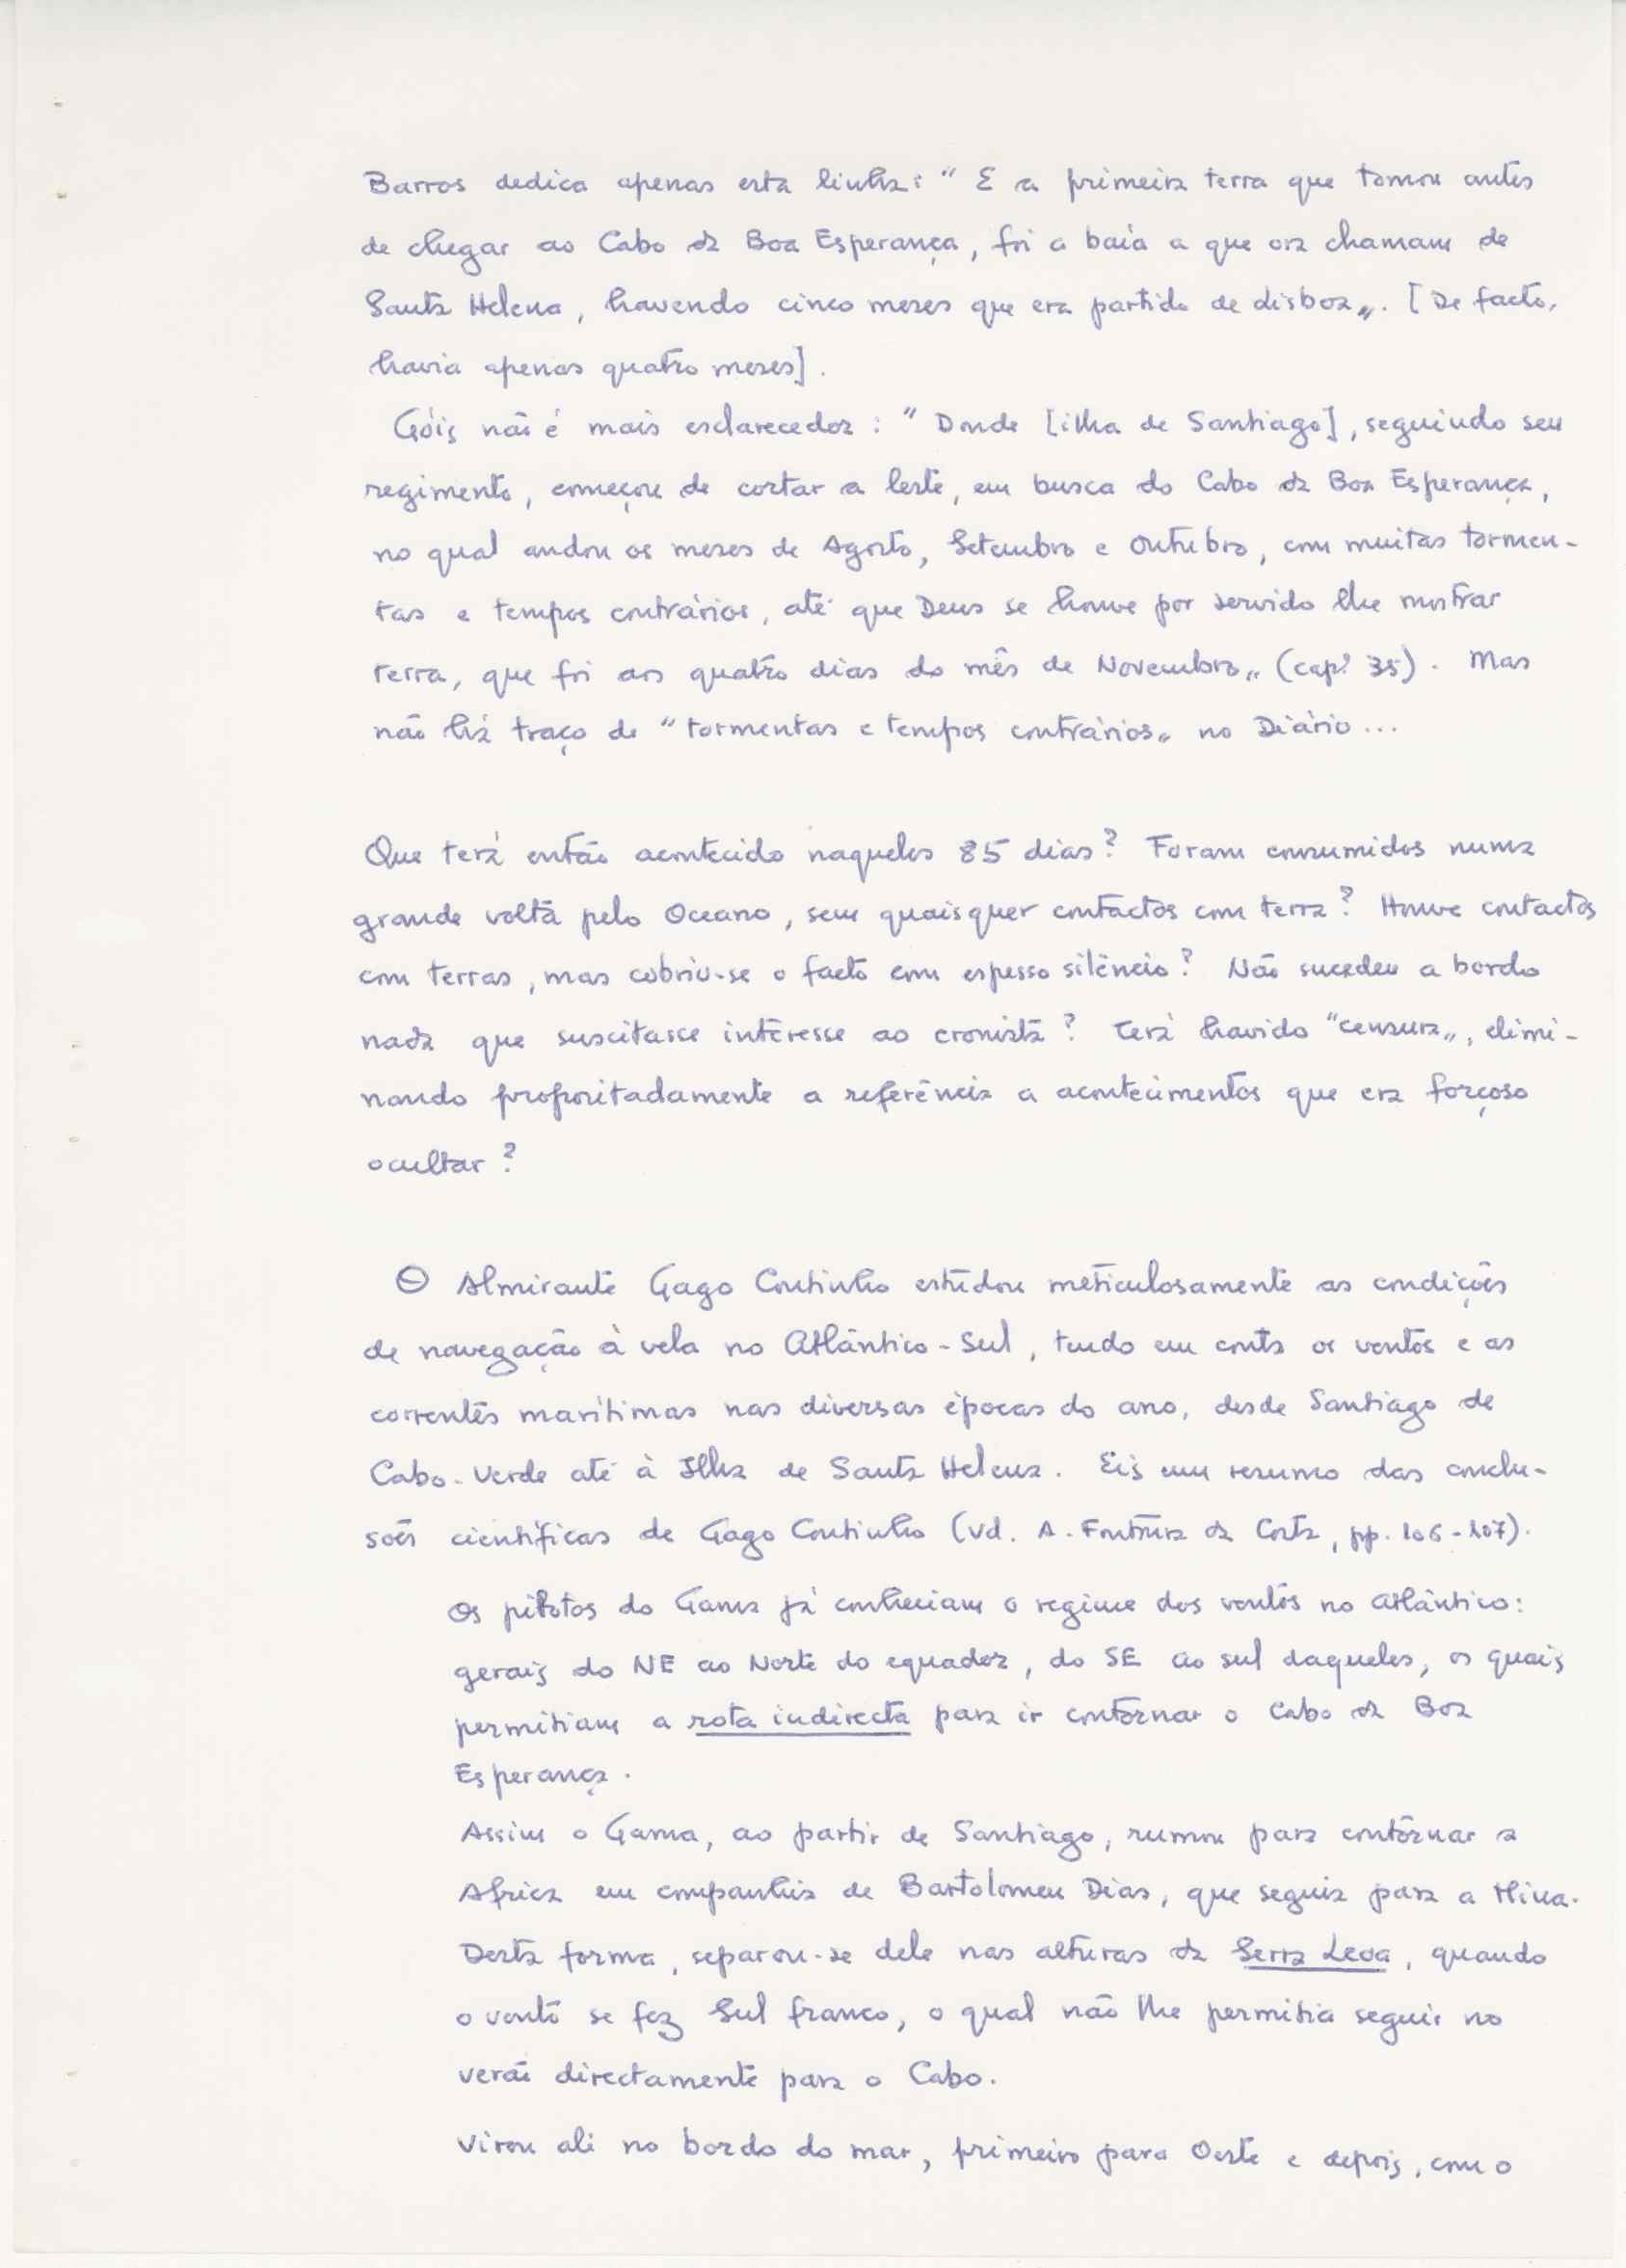 Barros dedica apenas esta linha: "E a primeira terra que tomou antes
de chegar ao Cabo da Boa Esperança, foi a baía a que ora chamam de
Santa Helena, havendo cinco meses que era partido de Lisboa". [De facto,
havia apenas quatro meses].
Góis não é mais esclarecedor: "Donde [ilha de Santiago], seguindo seu
regimento, começou de cortar a leste, em busca do Cabo da Boa Esperança,
no qual andou os meses de Agosto, Setembro e Outubro, com muitas tormen-
tas e tempos contrários, até que Deus se houve por servido lhe mostrar
terra, que foi aos quatro dias do mês de Novembro" (cap? 35). Mas
não há traço de "tormentas e tempos contrários" no Diário...
Que terá então acontecido naqueles 85 dias? Foram consumidos numa
grande volta pelo Oceano, sem quaisquer contactos com terra? Houve contactos
com terras, mas cobriu-se o facto com espesso silêncio? Não sucedeu a bordo
nada que suscitasse interesse ao cronista? Terá havido "censura", elimi-
nando propositadamente a referência a acontecimentos que era forçoso
ocultar?
O Almirante Gago Coutinho estudou meticulosamente as condições
de navegação à vela no Atlântico-Sul, tendo em conta os ventos e as
correntes marítimas nas diversas épocas do ano, desde Santiago de
Cabo-Verde até à Ilha de Santa Helena. Eis um resumo das conclu-
sões científicas de Gago Coutinho (vd. A. Fontoura da Costa, pp. 106-107).
Os pilotos do Gama já conheciam o regime dos ventos no Atlântico:
gerais do NE ao Norte do equador, do SE ao sul daqueles, os quais
permitiam a rota indirecta para ir contornar o Cabo da Boa
Esperança.
Assim o Gama, ao partir de Santiago, rumou para contornar a
Africa em companhia de Bartolomeu Dias, que seguia para a Mina.
Desta forma, separou-se dele nas alturas da Serra Leoa, quando
o vento se fez Sul franco, o qual não lhe permitia seguir no
verão directamente para o Cabo.
Virou ali no bordo do mar, primeiro para Oeste e depois, com o